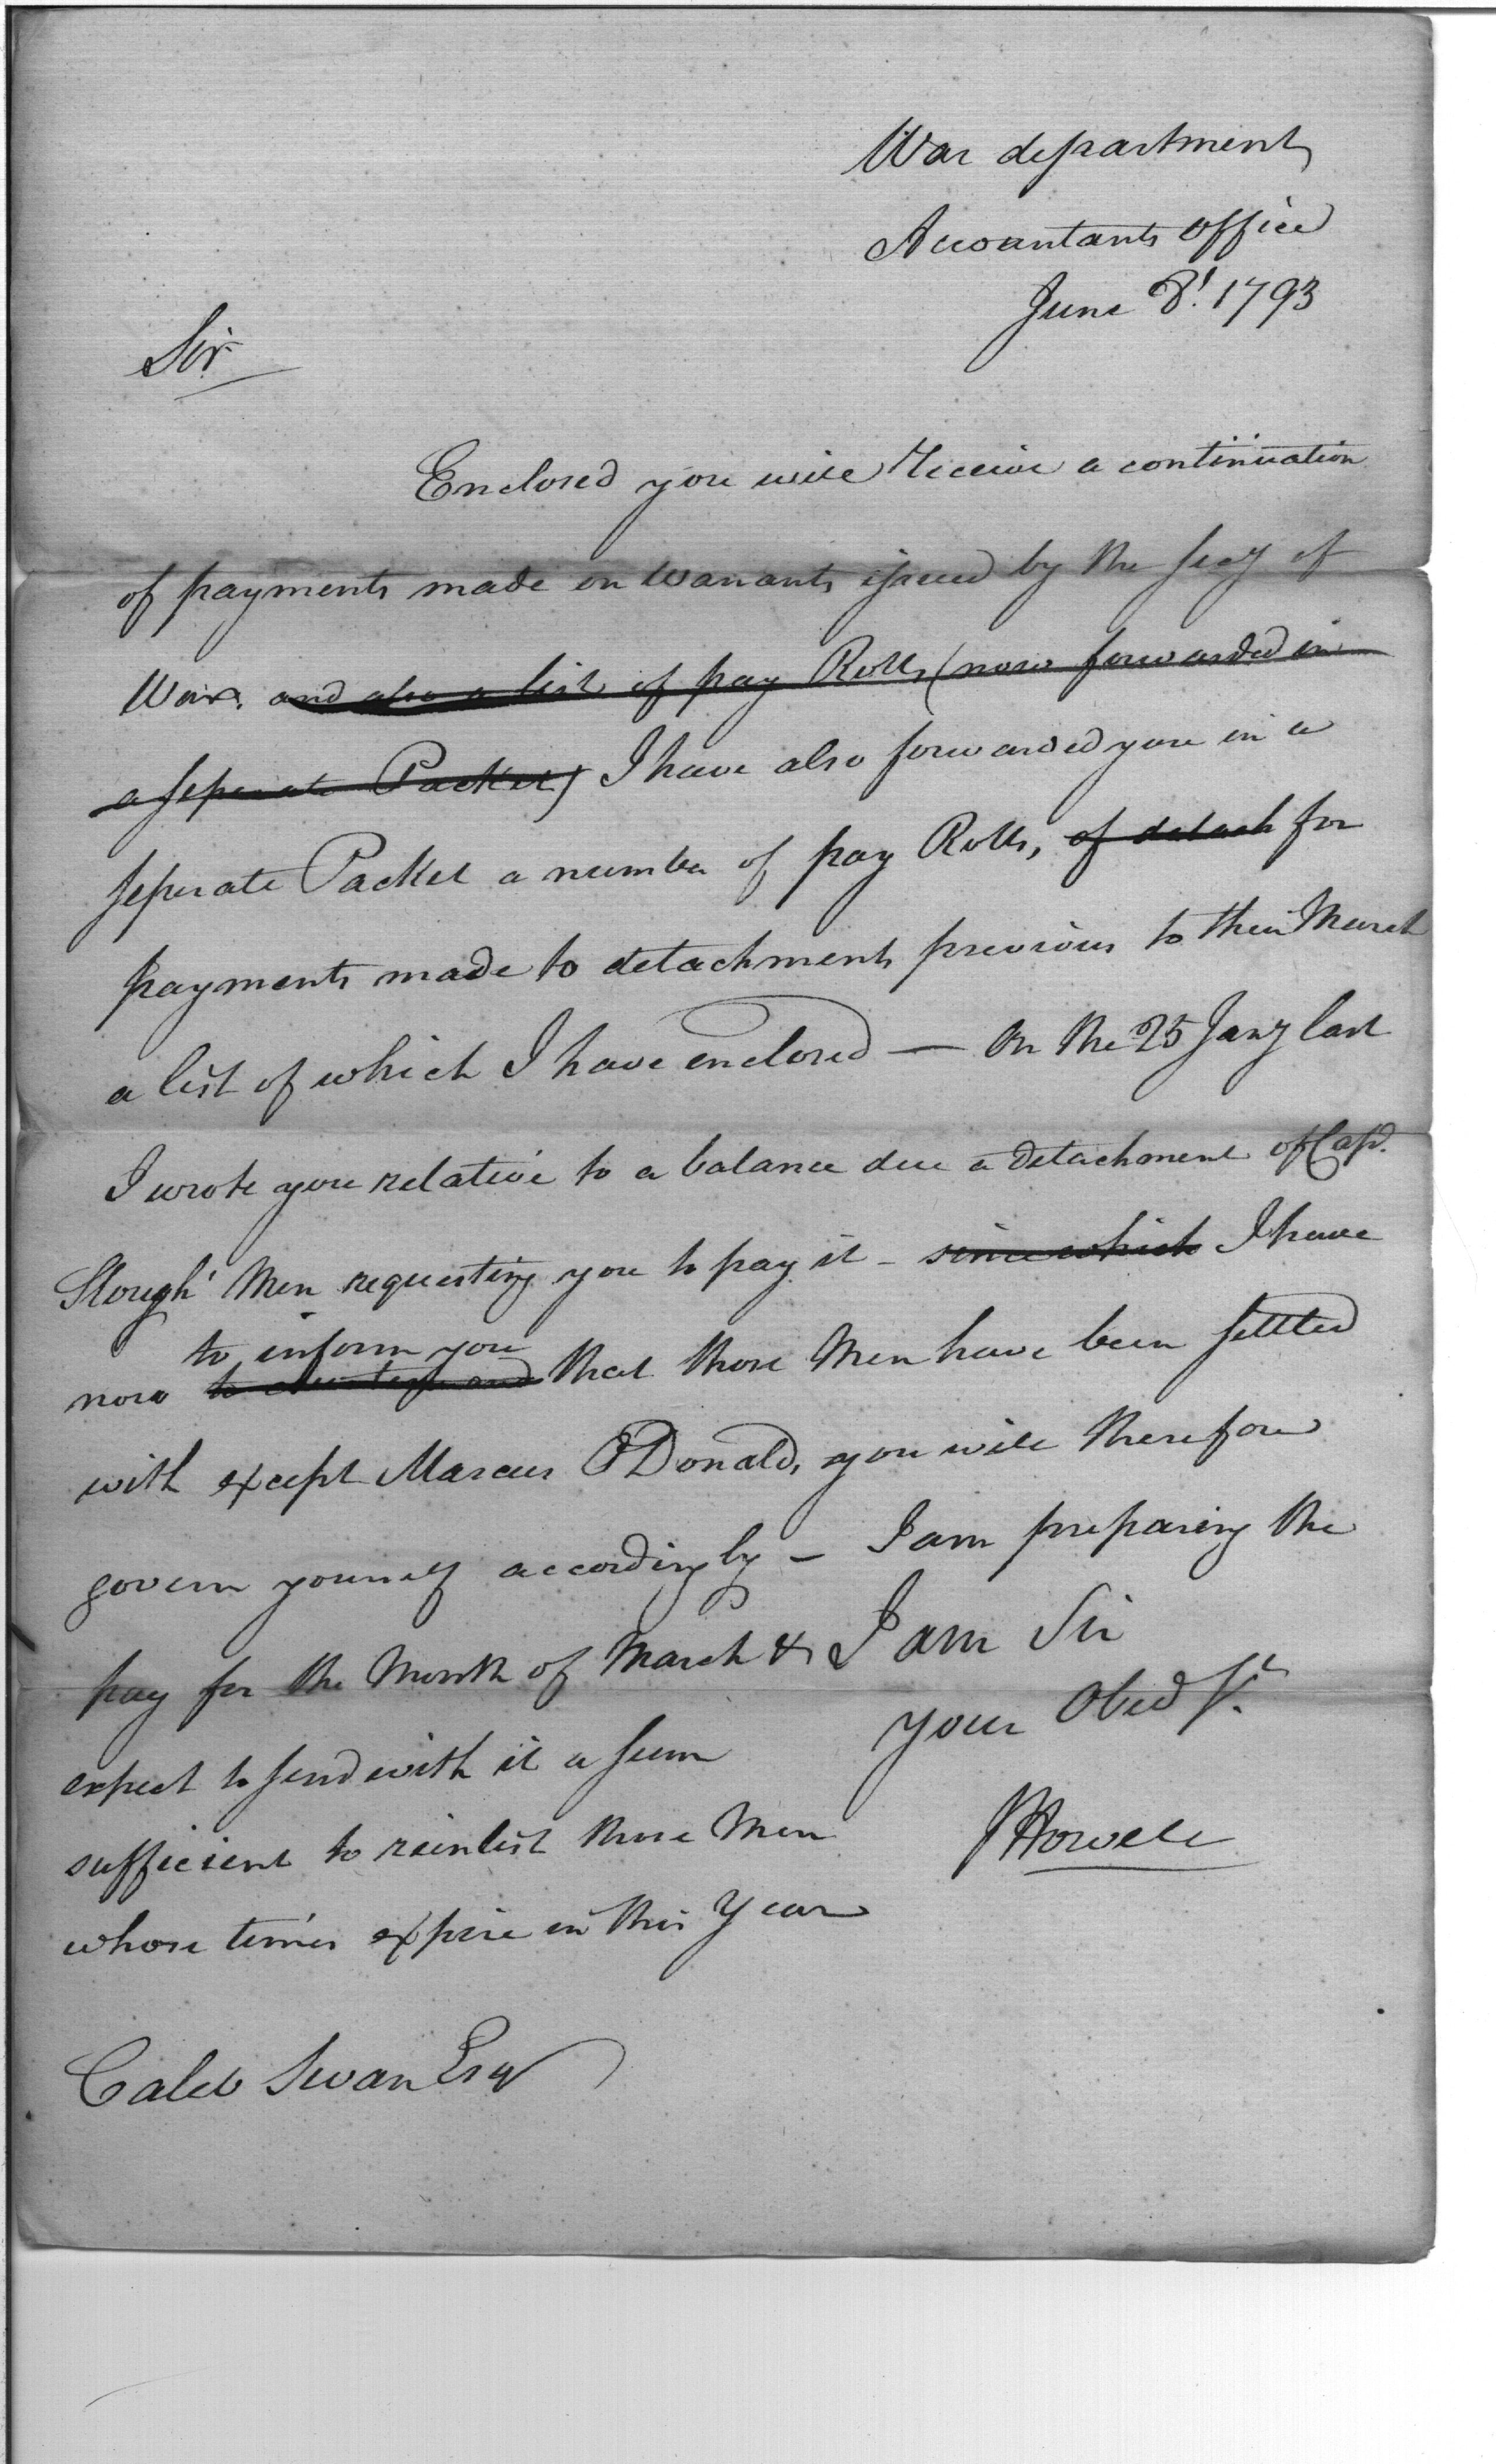 War department
Accountants office
June 8! 1793
Sir
Enclosed you will receive a continuation
of payments made on Warrants issued by the Secy of
War. and also a list of pay Rolls (now forwarded in
a seperate Packet) I have also forwarded you in a
seperate Packet a number of pay Rolls, of detach for
payments made to detachments previous to their March
a list of which I have enclosed — On the 25 Jany last
I wrote you relative to a balance due a detachment of Capt.
Slough' Men requesting you to pay it - since which I have
to inform you
now that those Men have been settled
with except Marcus O'Donald, you will therefore
govern yourself accordingly – I am preparing the
pay for the Month of March & I am Sir
expect to send with it a sum your Obed St.
sufficient to reinlist those Men JHowell
whose times expire in this Year
Caleb Swan Esq